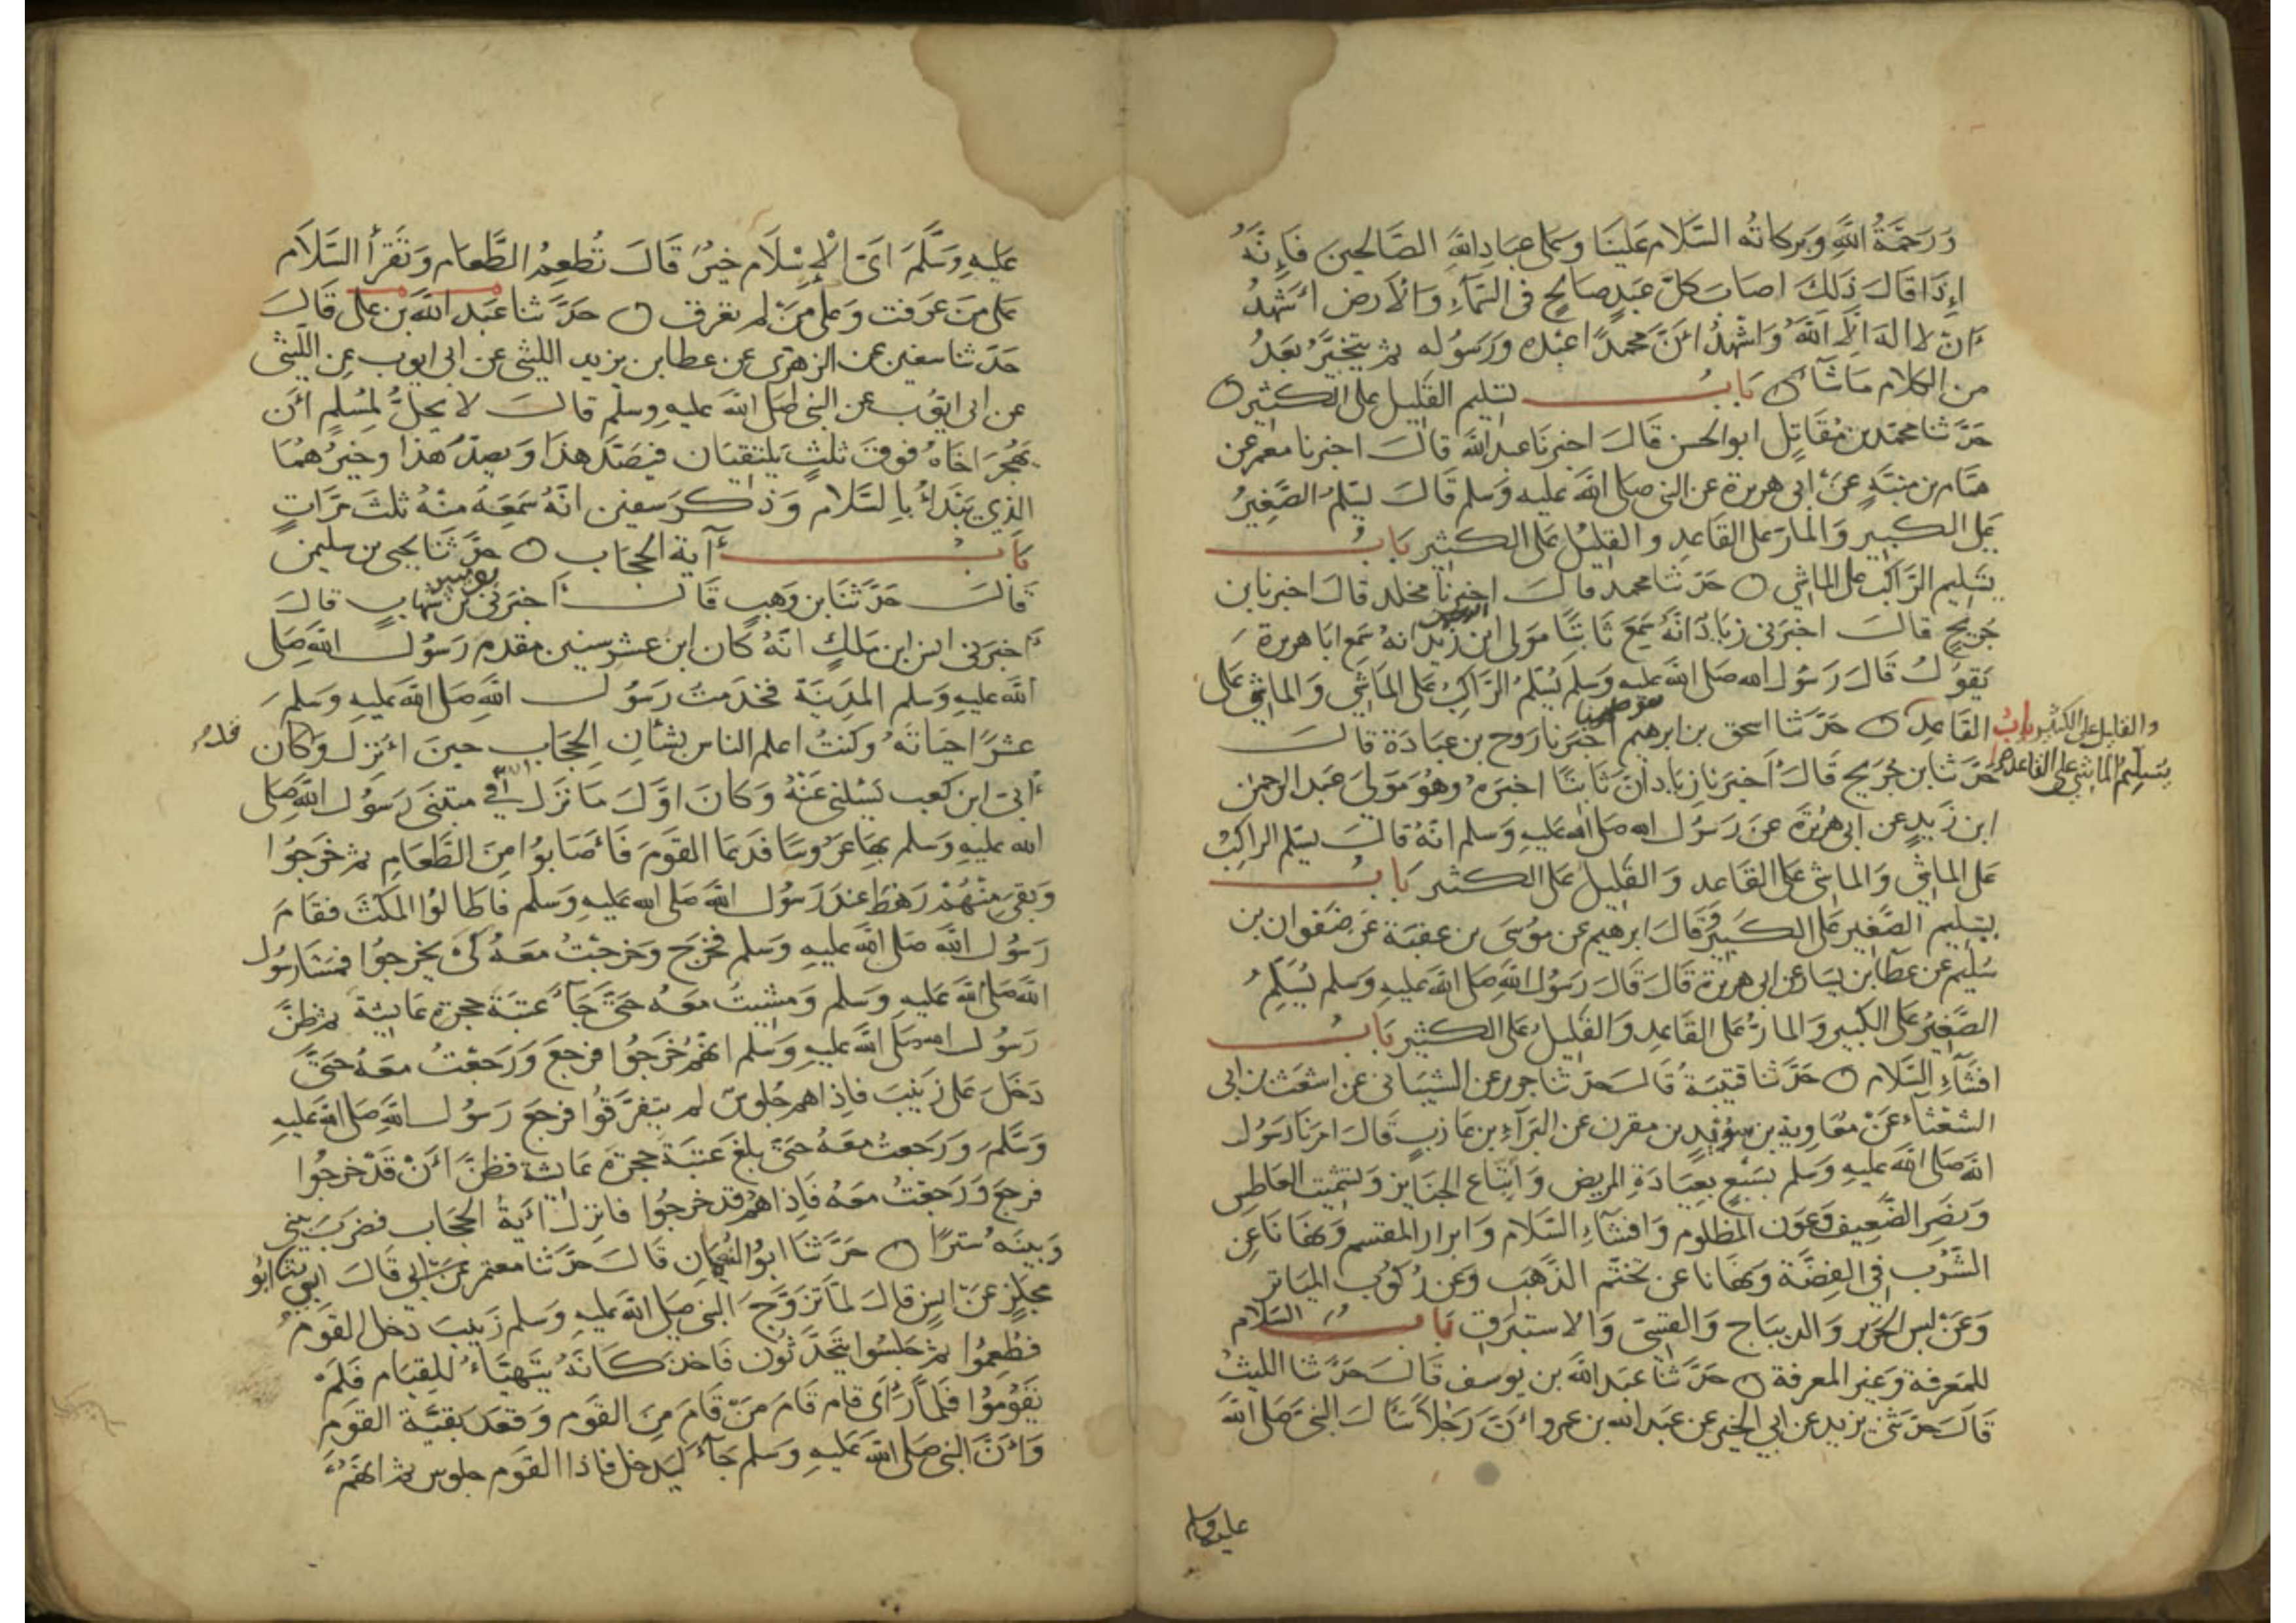 وَرَحْمَةُ اللهِ وَبركاته السَّلام عَلينَا وَعلى عِبَادِ اللهِ الصَّالحينَ فَإِنَّهُ
إِذَا قَالَ ذَلِكَ اصَابَ كلَّ عَبدٍ صَالحٍ في السَّمَآءِ وَالاَرض اَشهدُ
اَن لا اله الا الله وَاشْهدُ اَنَّ محمدًا عَبْده وَرَسُوله ثم يتخيَّرُ بَعدُ
من الكلام مَا شَآءَ بَابُ تسليم القَليل على الكثير
حَدَّثنا محمّد بن مُقَاتِل ابو الحسن قَالَ اخبرنَا عبد اللهَ قالَ اخبرنا معمر عن
همَّام بن منبّهٍ عَن ابى هريرة عن النبى صلى اللهَ عليه وَسلم قَالَ يسَلمُ الصَّغِيرُ
عَلى الكبيرِ وَالمارّ على القَاعدِ والقليلُ عَلى الكثيرِ بَابُ
تسَليم الرَّاكبِ على الماشي حَدَّثنا محمد قالَ اخبرنا مخلد قال اخبرنا بن
جُرَيجٍ قالَ اخبَرَنى زيَادٌ انَّهُ سَمِعَ ثَابتًا مَولى ابن زَيد انهُ سَمع ابَا هريرة
يَقولُ قَالَ رَسُول الله صَلى اللهَ عليه وَسَلم يُسَلّمُ الرَّاكبُ عَلى المَاشِي وَالماشِى عَلى
القَاعِدِ حَدَّثنا اسحق بن ابرهيم اخبَرنا رَوح بن عبَادَة قالَ
والقليل على الكثير بابُ
تسَليمُ الماشي على القاعد
حَدَّثنا بن جُرَيج قَالَ اَخبَرَنا زيَاد انَّ ثَابتًا اخبَرَهُ وَهُوَ مَولىَ عَبد الرحمن
ابن زَيدٍ عن ابى هرُيرَة عَن رَسُول الله صلى الله عَليهِ وَسلم انّهُ قالَ يسَلم الراكِبُ
عَلى الماشِي وَالماشى عَلى القَاعدِ وَ القَليل عَلى الكثير بَابُ
تسْليم الصَّغيرِ عَلى الكَبيرِ وَقَالَ ابرهيم عن مُوسَى بن عقبَة عَن صَفوان بن
سُلَيم عن عطَآ بن يسَار عن ابى هريرَة قَالَ قَالَ رَسُول اللهِ صَلى اللهَ عَليه وَسلم يُسَلِّمُ
الصَّغِيرُ عَلى الكبيرِ وَالمارُّ عَلى القَاعِدِ وَالقَليلُ عَلى الكثيرِ بَابُ
افشَآءِ السَّلام حَدَّثنا قتيبَةُ قَالَ حَدَّثنا جرير عن الشيبَانى عَن اشعَث بن ابى
الشعْثآء عَنْ معُاوِية بن سُوَيدٍ بن مقرن عَن البَرَآءِ بن عَازبٍ قَالَ امرَنا رَسُول
اللهَ صَلى اللهَ عليهِ وسلم بسَبْعٍ بعِيَادَةِ المريض وَاتبَاع الجنَايز وَتشميت العَاطِس
وَنصَرِ الضَّعِيف وَعَون المظلوم وَافشَآءِ السَّلام وَابرار المقسم وَنهَانَا عَن
الشُرب فى الفِضَّة وَنهَانا عَن تختّم الذَّهَب وَعَن رُكُوب الميَاثر
وَعَن لبس الحَرير وَالديبَاج وَالقَسّيّ وَالاستبرَق بَابُ السَّلام
للمَعرفة وَغير المعرفة حَدَّثنَا عَبد اللهَ بن يوسف قَالَ حَدَّثنا الليثُ
قَالَ حَدَّثنى يزيد عن ابي الخير عن عَبد الله بن عمرو اَنَّ رَجلاً سَأَلَ النبىَّ صَلى اللهَ
عليه وسلم
عَليهِ وَسَلَّمَ اىّ الإِسْلاَم خيرٌ قَالَ تُطعِمُ الطَّعام وَتَقرَأ السَّلاَم
عَلى مَن عَرَفت وَعَلى مَنْ لم تعرف حَدَّثنا عَبد اللهَ بن عَلى قَالَ
حَدَّثنا سفين عن الزهرَى عن عطا بن يزيد الليثى عن ابى ايوب عن الليثى
عن ابى ايوُّب عن النبى صَلى اللهَ عليهِ وسلَّم قالَ لا يحِلُّ لمُسلِمٍ اَن
يَهْجُرَ اخَاهُ فوقَ ثلثٍ يلتقيَان فيَصُدّ هذَا وَ يصدّ هَذا وخيرُهمَا
الذِي يَبْدَأُ باِلسَّلام وَذكرَ سفين انَّهُ سَمِعَهُ منْهُ ثلثَ مَرَّاتٍ
بَابُ آية الحجَاب حَدَّثَنَا يحيى بن سليمن
قَالَ حَدَّثنَا بن وَهبٍ قَالَ اَخبَرَنى يونس عن بن شهابٍ قالَ
اَخبَرنى انس ابن مَالكٍ انَّهُ كَان ابن عَشر سِنين مقدم رَسُول اللهِ صَلى
اللهَ عليهِ وَسلم المدِينَة فخدَمتُ رَسُول اللهِ صَلى الله عَليهِ وَسلم
عشرًا حيَاتَهُ وَكنتُ اعلم الناس بشَأن الحِجَاب حينَ اُنزل وَكان
اُبىّ ابن كعب يَسئلنى عَنْهُ وَكَانَ اوَّلَ مَا نَزَل في مبتَنَى رَسُول اللهَ صَلى
الله عليهِ وَسلم بهَا عَرُوسًا فدَعَا القومَ فَأَصَابوُا مِنَ الطَّعَامِ ثم خَرَجُوا
وَبقىِ منْهُمْ رَهْط عندَ رَسُول اللهَ صَلى الله عَليهِ وَسلم فاطَالوُا المكثَ فقَامَ
رَسُول اللهَ صَلى اللهَ عليهِ وَسلم فخرَج وَخرَجْتُ مَعَهُ كَىْ يخرجوُا فمشَا رَسُول
اللهَ صَلى اللهَ عَليهِ وَسلم وَمشيتُ معَهُ حَتىّ جَآءَ عَتبَة حجرة عَايشَة ثم ظنَّ
رَسُول الله صَلى اللهَ عليهِ وَسَلم انهمُ خَرَجُوا فرجعَ وَرَجَعْتُ معَهُ حَتىَّ
دَخَلَ عَلى زَينَبَ فاِذا هم جُلوسٌ لم يتَفَرَّقوُا فرجعَ رَسُول اللهَ صَلى اللهَ عَليهِ
وَسَلَّمَ وَرَجعتُ معَهُ حَتىّ بلغ عَتبَة حجرَة عَائشة فظنَّ اَنْ قَدْ خرجوُا
فرجعَ وَرَجعْتُ معَهُ فَاِذا هُم قد خرجُوا فانزلَ اَيةُ الحجَاب فضرَبَ بينى
وَبينَهُ سترًا حَدَّثنَا ابوُ النعُمَان قَالَ حَدَّثنا معتمر عَن ابى قَالَ حدثنا ابُو
مجلزٍ عَن انسٍ قالَ لمَّا تَزَوَّجَ النبى صلى الله عَليه وَسلم زَينَبَ دخل القَومُ
فطَعِمُوا ثم جَلسُوا يتحَدَّثُون فَاخذَ كَانَهُ يَتهيَّاءُ للِقيَام فَلَمْ
يَقوُمُوا فَلمَّا رَأَى قام قَامَ مَن قَامَ مِنَ القَومِ وَقعَدَ بَقيَّة القَومِ
وَاَنَّ النبى صَلى الله عَليهِ وَسلم جَآءَ ليَدخل فَاذا القَوم جلوس ثم انهمُ